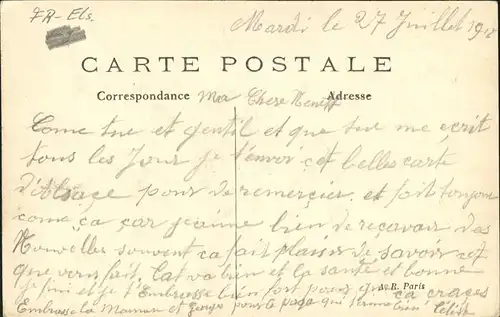 FR-Els.
Mardi le 27 Juillet 19
CARTE POSTALE
Correspondance
Adresse
Ma Chere
Come tue et gentil et que tue me ecrit
tous les Jour je t'envoi cet belles carte
d'Alsace pour de remercier et fait toujour
come ca car j'aime bien de reçavoir des
Nouvelles souvent ca fait plaisir de savoir cet
que vous fait, Cat va bien et la santé et bonne
je fini et je t'Embrasse bien fort pour que ca
A. R. Paris
Embrasse la Maman et pour le papa qui bien